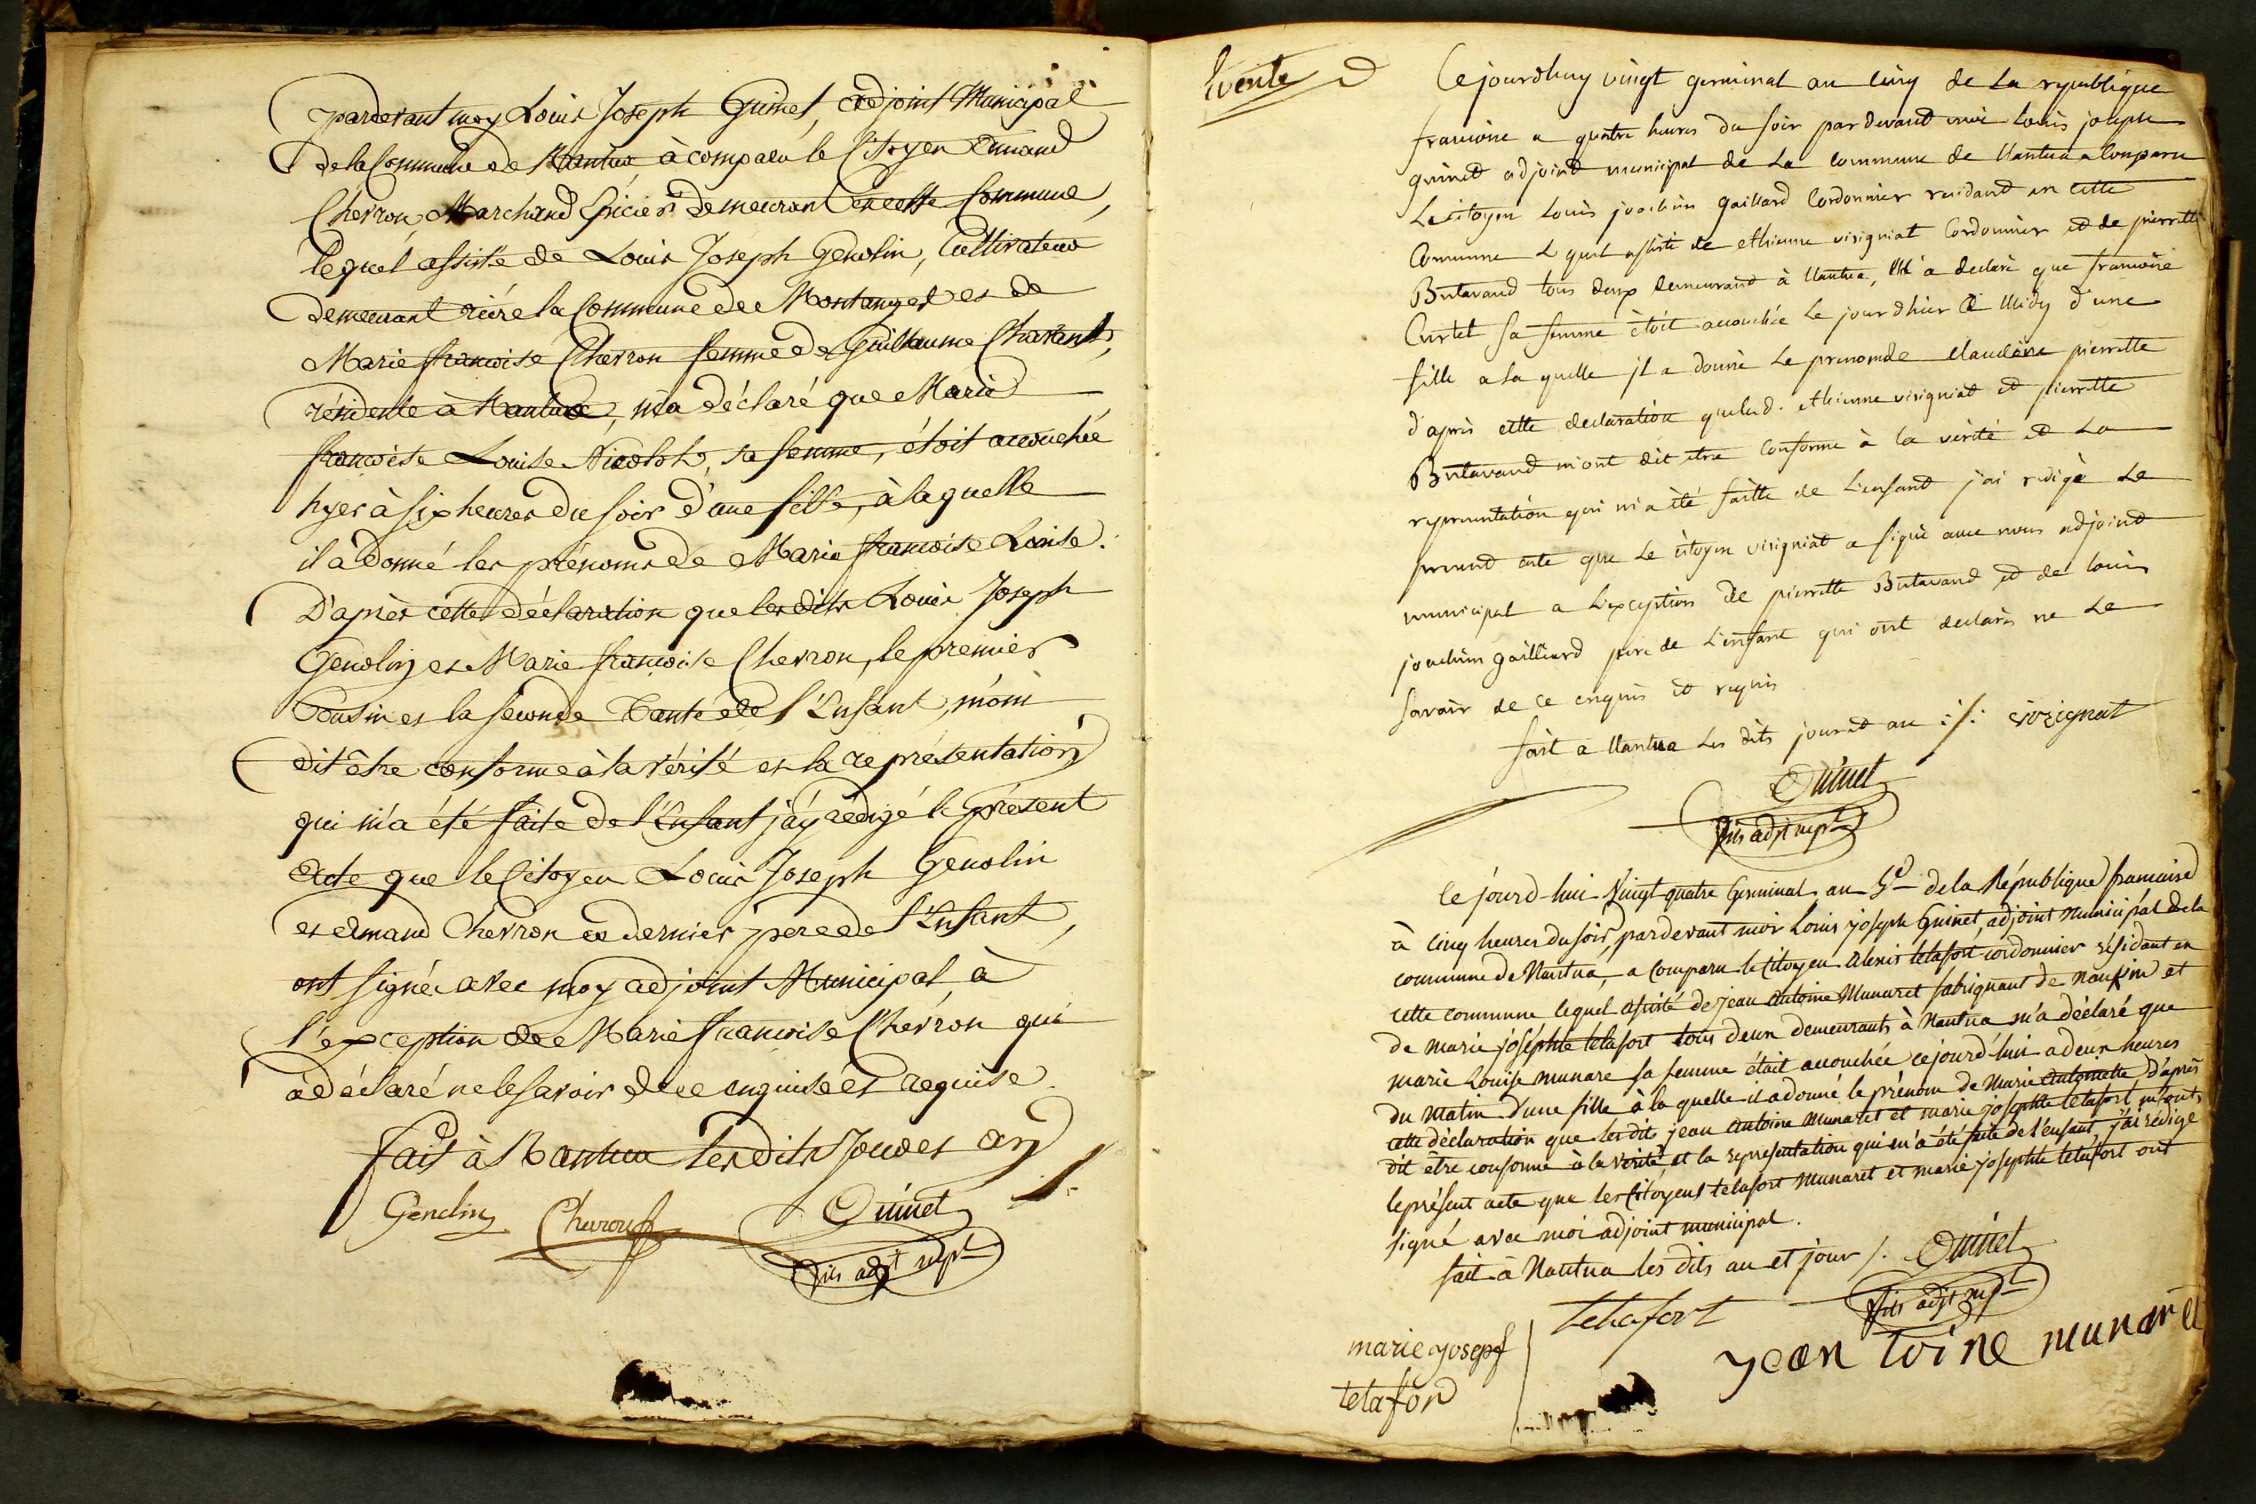 pardevant moy Louis Joseph Guinet, adjoint Municipal
de la Commune de Nantua, à comparu le Citoyen Amand
Chevron, Marchand Epicier demeurant en cette Commune,
lequel assisté de Louis Joseph Genolin, Cultivateur
demeurant rière la Commune de Montanges et de
Marie françoise Chevron femme de Guillaume
résidente à Nantua, m'a déclaré que Marie
françoise Louise sa femme, étoit accouchée
hyer à six heures du soir d'une fille, à laquelle
il à donné les prénoms de Marie françoise Louise.
D'après cette déclaration que lesdits Louis Joseph
Genolin et Marie françoise Chevron, le premier
Cousin et la seconde Tante de l'Enfant, m'ont
dit être conforme à la vérité et la représentation
qui m'a été faite de l'Enfant j'ay rédigé le présent
acte que le Citoyen Louis Joseph Genolin
et Amand Chevron ce dernier pere de l'Enfant,
ont signé avec moy adjoint Municipal à
l'exception de Marie françoise Chevron qui
à déclaré ne le savoir de ce enquise et requise.
fait à Nantua lesdits Jour et an
Genolin Chevron Guinet
fils adjt mpl
Cejourdhuy vingt germinal an cinq de La republique
francoise a quatre heures du soir par devand moi Louis joseph
guinet adjoint municipal de La commune de Nantua a Comparu
Le citoyen Louis joachim gaillard Cordonnier residand en cette
Commune Lequel assisté de ethienne visigniat Cordonnier et de pierrette
Butavand tous deux demeurand à Nantua, m'a declaré que francoise
Curtet sa femme étoit accouchée Le jour dhier a Midy d'une
fille a la quelle il a donné Le prenom de Claudine pierrette
d'après cette declaration que Led. ethienne visigniat et pierrette
Butavand m'ont dit etre Conforme à la vérité et La
representation qui m'a été faitte de L'enfand j'ai redigé Le
present acte que Le citoyen visigniat a signé avec nous adjoint
municipal a L'exception de pierrette Butavand et de louis
joachim gailliard pere de L'enfant qui ont declarés ne Le
savoir de ce enquis et requis
fait a Nantua Les dits jour et an visignat
Guinet
fils adjt mpl
Ce jourd-hui Vingt quatre Germinal an 5e de la République francaise
à cinq heures du soir, pardevant moi Louis joseph Guinet, adjoint municipal de la
commune de Nantua, a comparu le Citoyen Alexis telafort cordonnier résidant en
cette commune lequel assisté de jean Antoine Munaret fabriquant de et
de marie joséphte telafort tous deux demeurants à Nantua m'a déclaré que
marie Louise munare sa femme était accouchée cejourd'hui a deux heures
du matin d'une fille à la quelle il a donné le prénom de Marie Antoinette d'après
cette déclaration que lesdits jean Antoine Munaret et marie josephte telafort m'ont
dit être conforme à la verité, et la representation qui m'a été faite de l'enfant, j'ai rédigé
le présent acte que les Citoyens telafort munaret et marie josephte telafort ont
signé avec moi adjoint municipal.
fait à Nantua les dits an et jour Guinet
fils adjt mpl
telafort
marie josepf
telaford
jean toine munaret